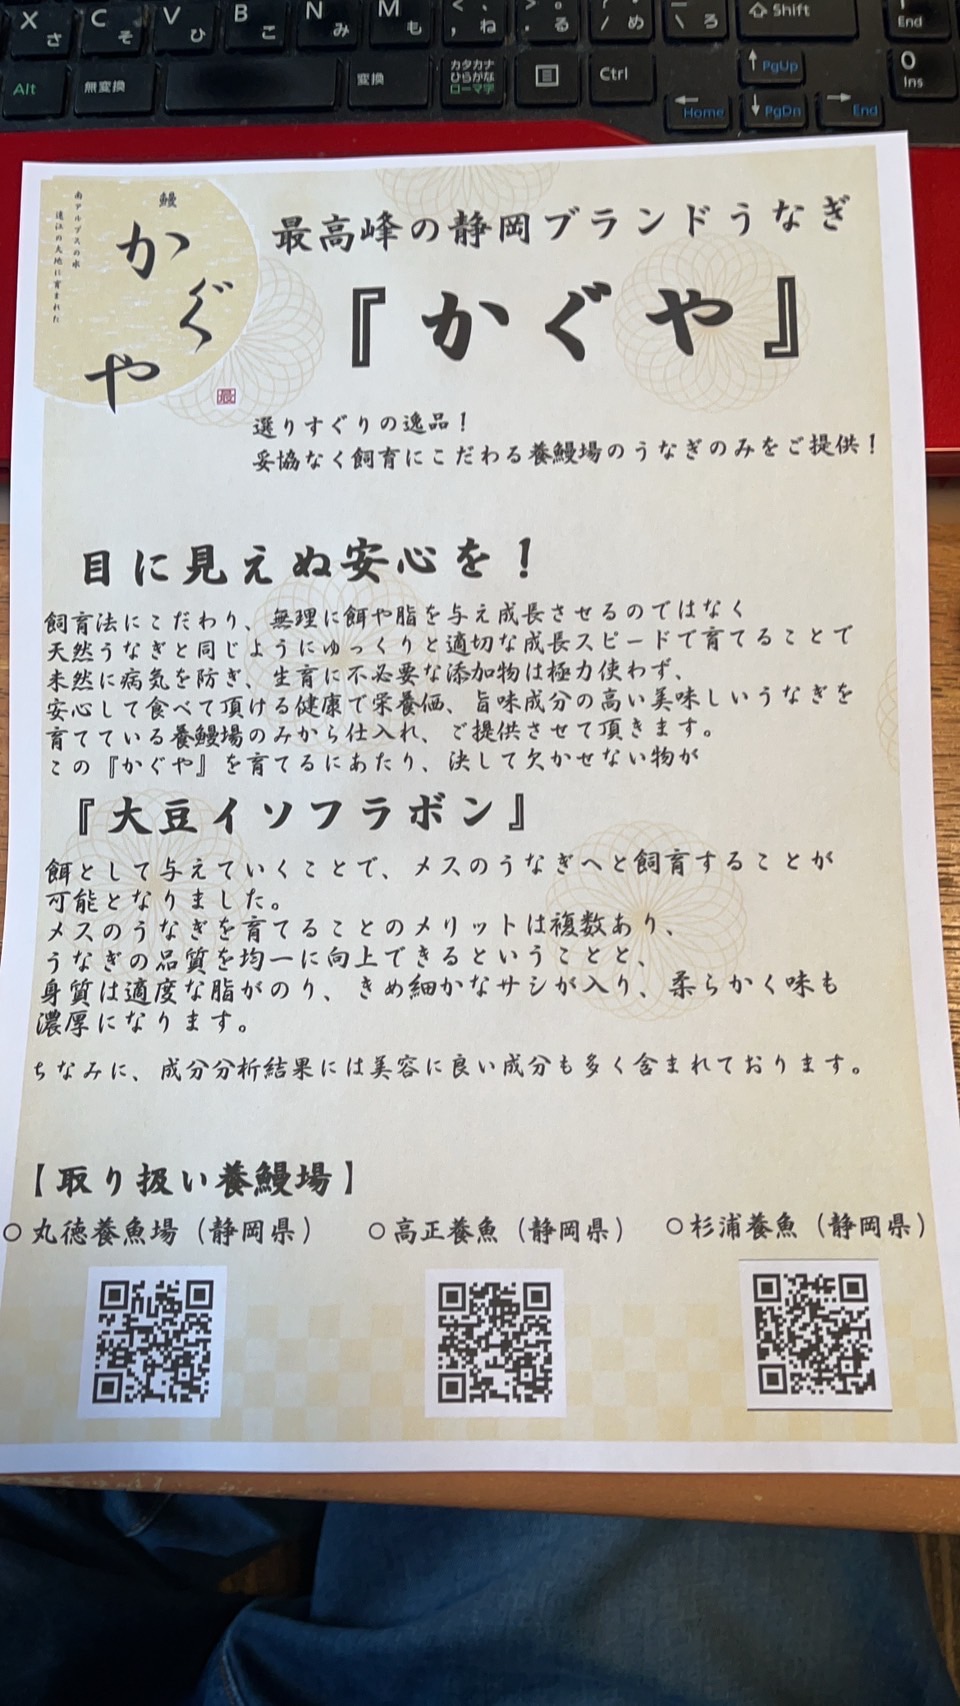 X さ
C そ
V ひ
B こ
N み
M も
< 、
, ね
> 。
. る
/ め
\ ろ
Shift
End
Alt
無変換
変換
カタカナ
ひらがな
ローマ字
Ctrl
PgUp
0
Ins
Home
PgDn
End
鰻
かぐや
南アルプスの水
遠江の大地に育まれた
最高峰の静岡ブランドうなぎ
『かぐや』
選りすぐりの逸品!
妥協なく飼育にこだわる養鰻場のうなぎのみをご提供!
目に見えぬ安心を!
飼育法にこだわり、無理に餌や脂を与え成長させるのではなく
天然うなぎと同じようにゆっくりと適切な成長スピードで育てることで
未然に病気を防ぎ、生育に不必要な添加物は極力使わず、
安心して食べて頂ける健康で栄養価、旨味成分の高い美味しいうなぎを
育てている養鰻場のみから仕入れ、ご提供させて頂きます。
この『かぐや』を育てるにあたり、決して欠かせない物が
『大豆イソフラボン』
餌として与えていくことで、メスのうなぎへと飼育することが
可能となりました。
メスのうなぎを育てることのメリットは複数あり、
うなぎの品質を均一に向上できるということと、
身質は適度な脂がのり、きめ細かなサシが入り、柔らかく味も
濃厚になります。
ちなみに、成分分析結果には美容に良い成分も多く含まれております。
【取り扱い養鰻場】
○丸徳養魚場(静岡県) ○高正養魚(静岡県) ○杉浦養魚(静岡県)